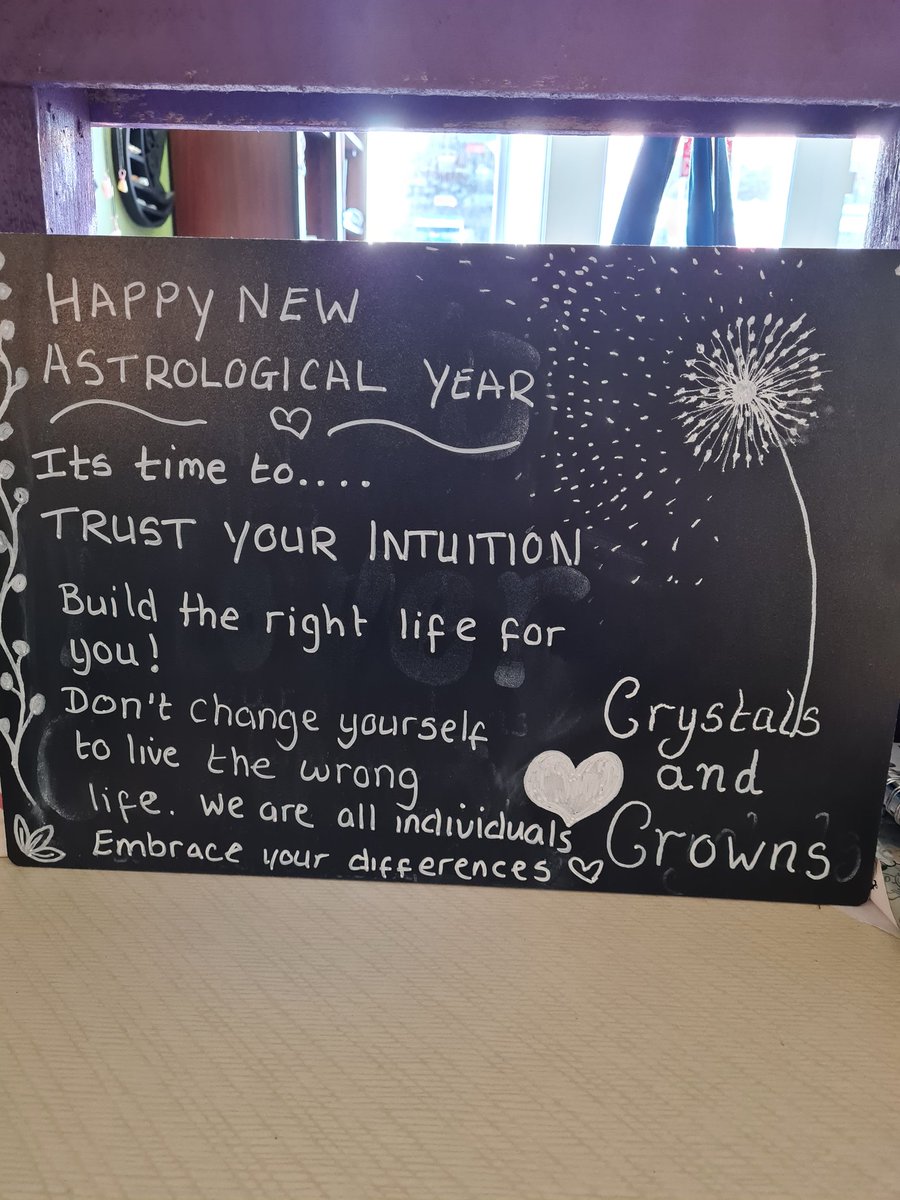 HAPPY NEW
ASTROLOGICAL YEAR
Its time to....
TRUST YOUR INTUITION
Build the right life for
you!
Don't change yourself
to live the wrong
life. We are all individuals
Embrace your differences
Crystals
and
Crowns